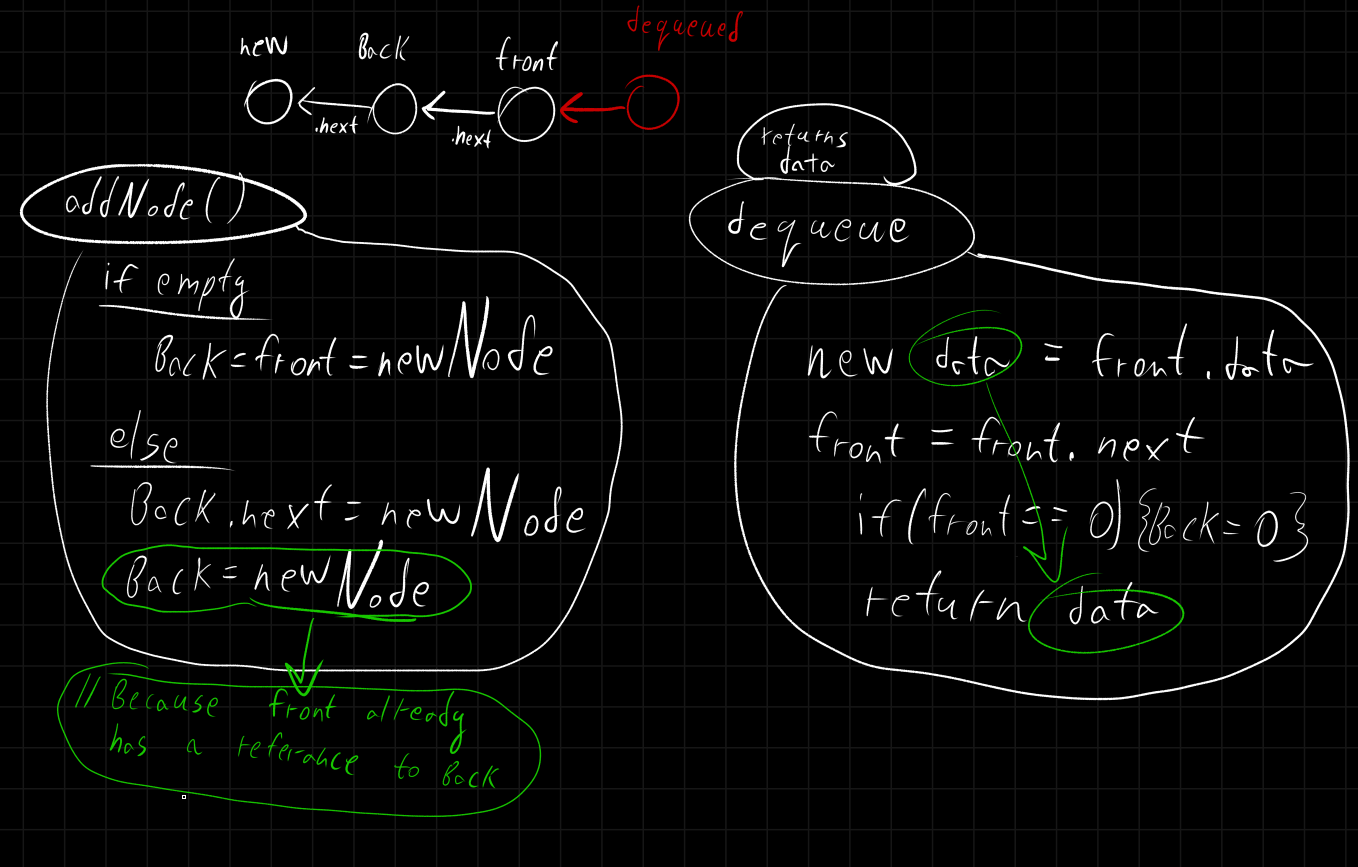 dequeued
new
Back
front
.next
.next
returns
data
addNode()
if empty
Back=front=newNode
else
Back.next=newNode
Back=newNode
// Because front already
has a referance to Back
dequeue
new data = front.data
front = front.next
if(front==0){Back=0}
return data